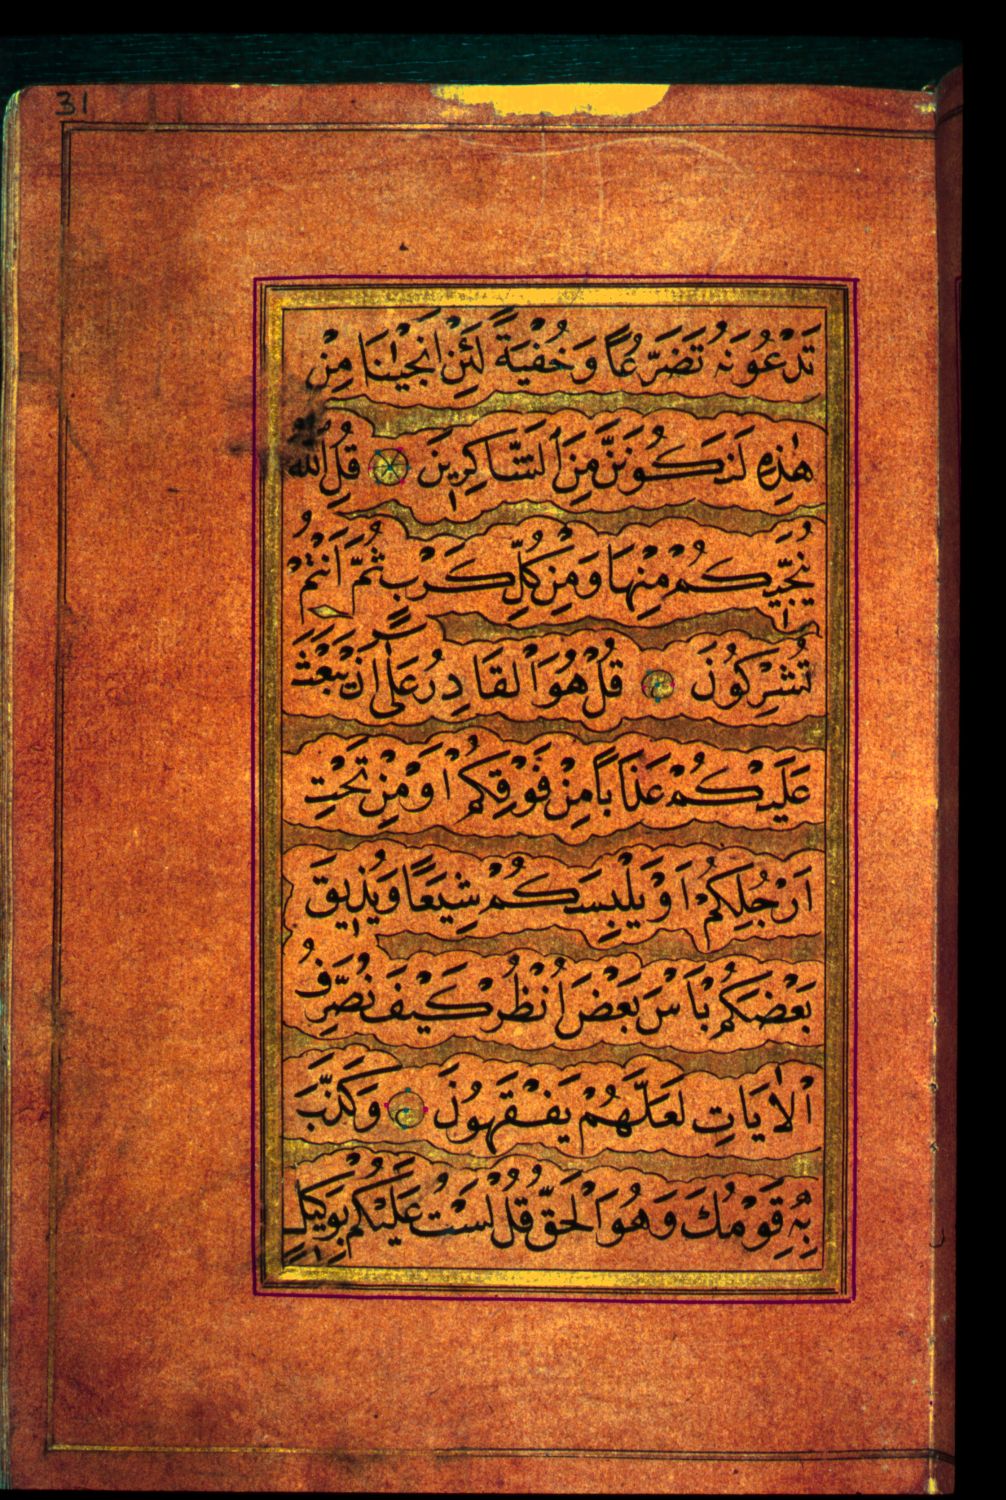 31
تَدْعُونَهُ تَضَرُّعًا وَخُفْيَةً لَئِنْ اَنْجٰينَا مِنْ
هٰذِهِ لَنَكُونَنَّ مِنَ الشَّاكِرِينَ قُلِ اللّٰهُ
يُنَجِّيكُمْ مِنْهَا وَمِنْ كُلِّ كَرْبٍ ثُمَّ اَنْتُمْ
تُشْرِكُونَ قُلْ هُوَ الْقَادِرُ عَلٰى اَنْ يَبْعَثَ
عَلَيْكُمْ عَذَابًا مِنْ فَوْقِكُمْ اَوْ مِنْ تَحْتِ
اَرْجُلِكُمْ اَوْ يَلْبِسَكُمْ شِيَعًا وَيُذِيقَ
بَعْضَكُمْ بَاْسَ بَعْضٍ اُنْظُرْ كَيْفَ نُصَرِّفُ
الْاٰيَاتِ لَعَلَّهُمْ يَفْقَهُونَ وَكَذَّبَ
بِهِ قَوْمُكَ وَهُوَ الْحَقُّ قُلْ لَسْتُ عَلَيْكُمْ بِوَكِيلٍ